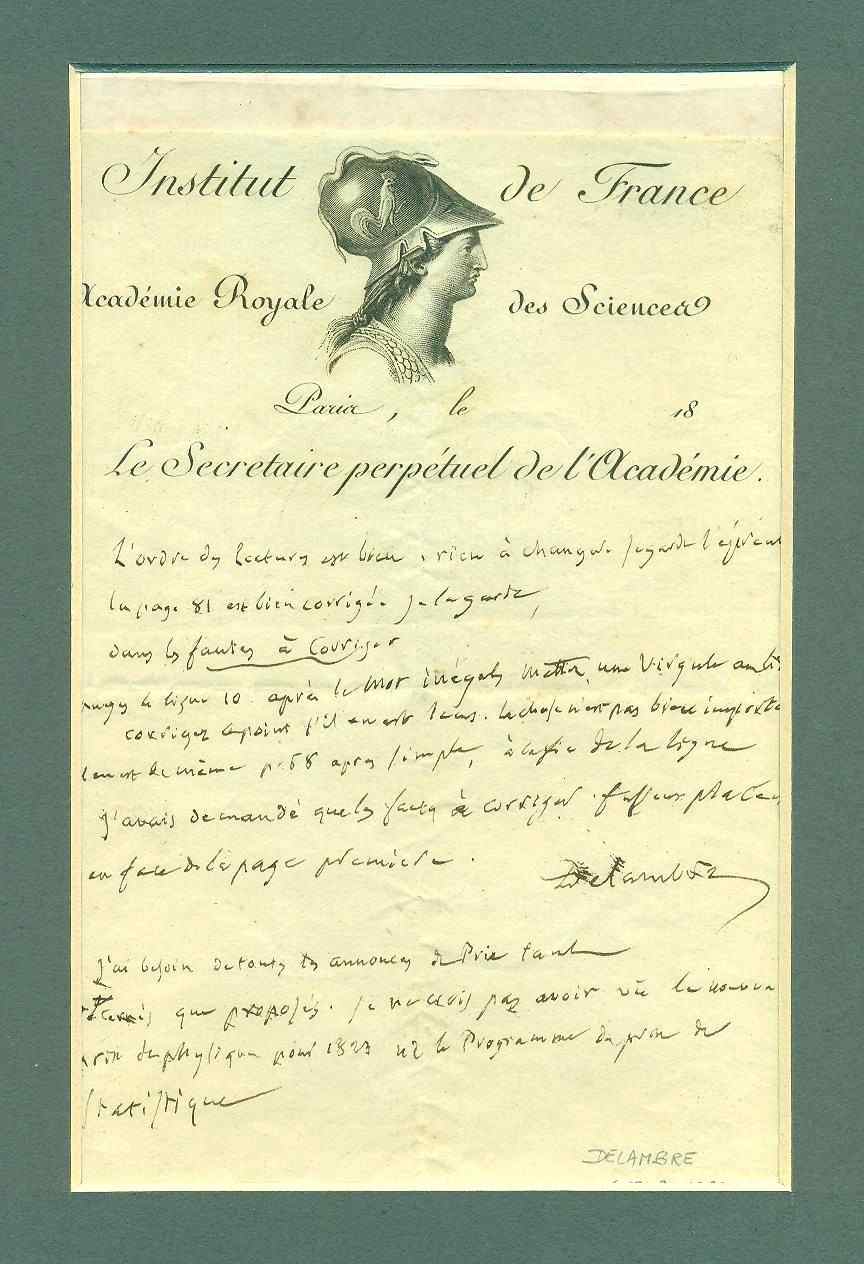 Institut de France
Académie Royale des Sciences
Paris, le 18
Le Secretaire perpétuel de l'Académie.
L'ordre des lectures est bien, rien à changer. je garde l'
la page 81 est bien corrigée je la garde,
dans les fautes à Corriger
ligne 10 après le mot inégales mettez une virgule
corrigez s'il en est tems. la chose n'est pas bien importa
de même p. 68 après simple, à la fin de la ligne
j'avais demandé que les à corriger fussent placés
en face de la page première.
Delambre
J'ai besoin de toutes les annonces de Prix tant
que proposés. Je ne crois pas avoir vu le nouveau
prix de physique pour 1823 ni le Programme du prix de
statistique
DELAMBRE